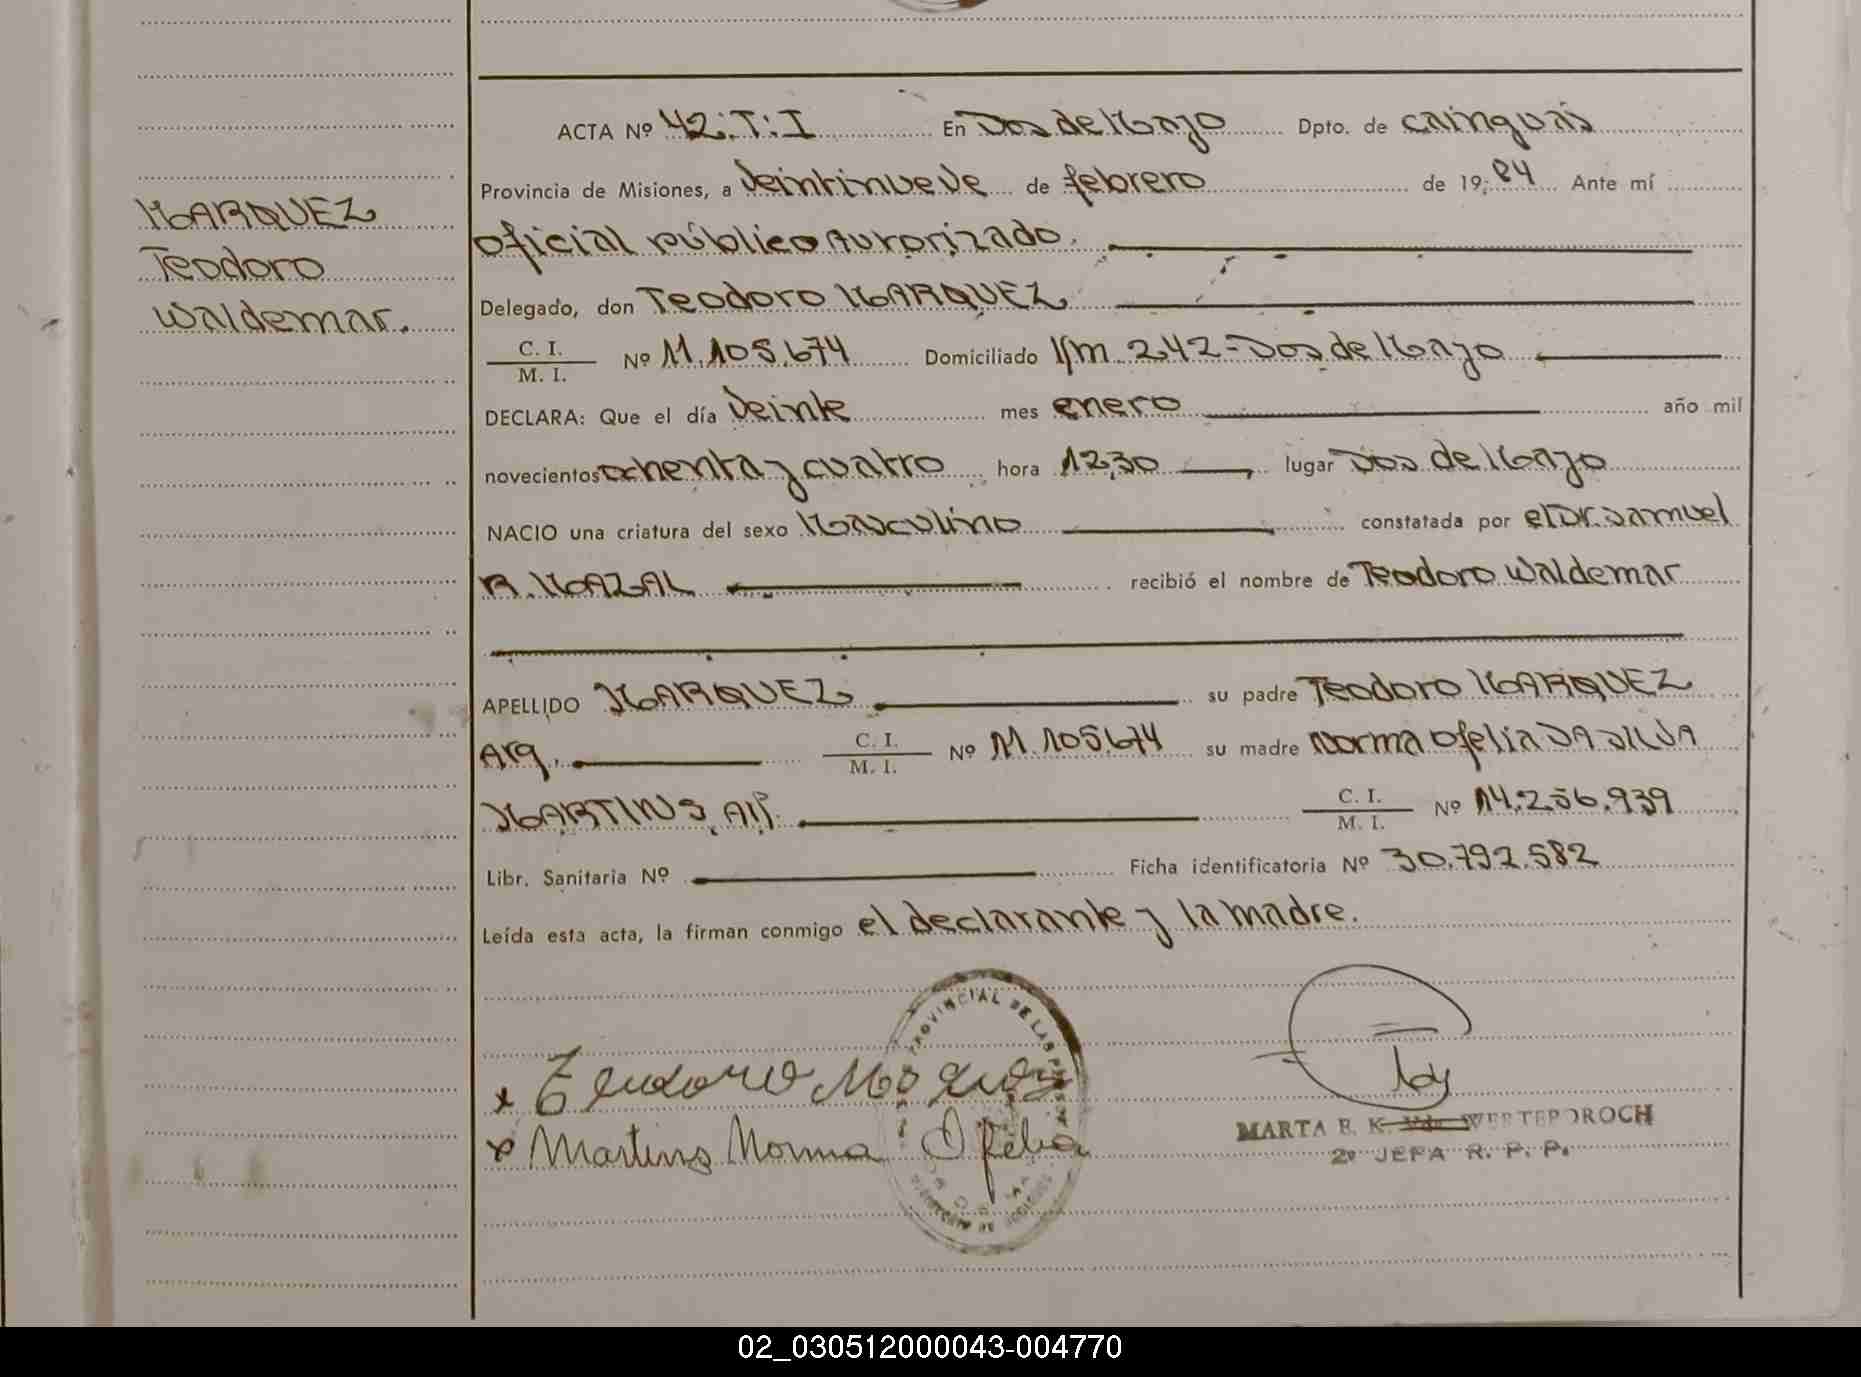 MARQUEZ
Teodoro
Waldemar.
ACTA Nº 42:T:I En Dos de Mayo Dpto. de cainguás
Provincia de Misiones, a Veintinueve de febrero de 19 84 Ante mí
oficial público Autorizado.
Delegado, don Teodoro MARQUEZ
C. I. / M. I. Nº 11.105.674 Domiciliado Km 242-Dos de Mayo
DECLARA: Que el día Veinte mes enero año mil
novecientos ochenta y cuatro hora 12,30 lugar Dos de Mayo
NACIO una criatura del sexo Masculino constatada por el Dr. Samuel
A. MAZAL recibió el nombre de Teodoro Waldemar
APELLIDO MARQUEZ su padre Teodoro MARQUEZ
Arg. C. I. / M. I. Nº 11.105.674 su madre Norma Ofelia DA SILVA
MARTINS, C. I. / M. I. Nº 14.256.939
Libr. Sanitaria Nº Ficha identificatoria Nº 30.792.582
Leída esta acta, la firman conmigo el declarante y la madre.
PROVINCIAL DE LAS
x Teodoro
x Martins Norma Ofelia
MARTA E. K. WESTERDROCH
2º JEFA R. P. P.
02_030512000043-004770